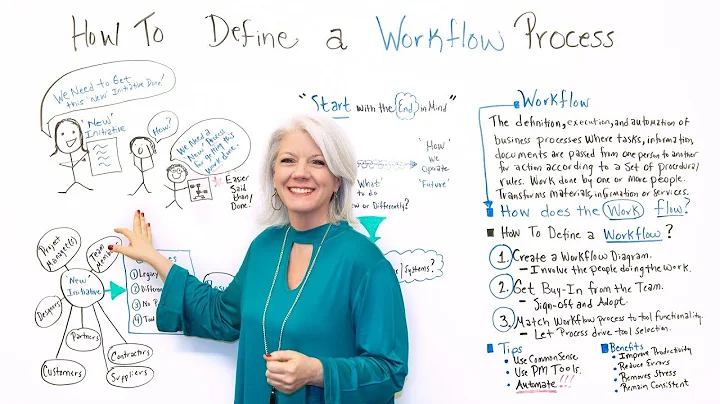 How To Define a Workflow Process
We Need to Get
this 'New' Initiative Done!
'New'
Initiative
How?
We Need a
'New' Process
for getting this
work done.
Easier
Said
than/
Done.
"Start with the End in Mind"
'How'
we
Operate
'What'
to do
or Differently?
'Future'
/Systems?
Project
Manager(s)
Team
'New'
Initiative
Designers
Partners
Contractors
Suppliers
Customers
1 Legacy
2
3 No
4 Tool
Workflow
The definition, execution, and automation of
business processes where tasks, information,
documents are passed from one person to another
for action according to a set of procedural
rules. Work done by one or more people.
Transforms materials, information or services.
How does the Work flow?
How To Define a Workflow?
1. Create a Workflow Diagram.
- Involve the people doing the work.
2. Get Buy-In from the Team.
- Sign-off and Adopt.
3. Match Workflow process to tool functionality.
- Let Process drive tool selection.
Tips
• Use Common Sense
• Use PM Tools.
• Automate!!!
Benefits
• Improve Productivity
• Reduce Errors
• Removes Stress
• Remain Consistent